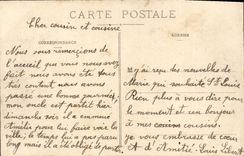 CARTE POSTALE
CORRESPONDANCE
ADRESSE
Cher cousin et cousine
Nous vous remercions de
l'accueil que vous nous avez
fait nous avons été tous
très content nous avons
passé une bonne journée
mon oncle est partit hier
dimanche soir il a emmené
Amélie pour lui faire voir la
ville, le temps lui a pas
long mais il a été obligé de partir
j'ai reçu des nouvelles de
Marie qui souhaite St Louis
Rien plus à vous dire pour
le moment et un bonjour
à mes cousins
je vous embrasse de cœur
et D'Amitié